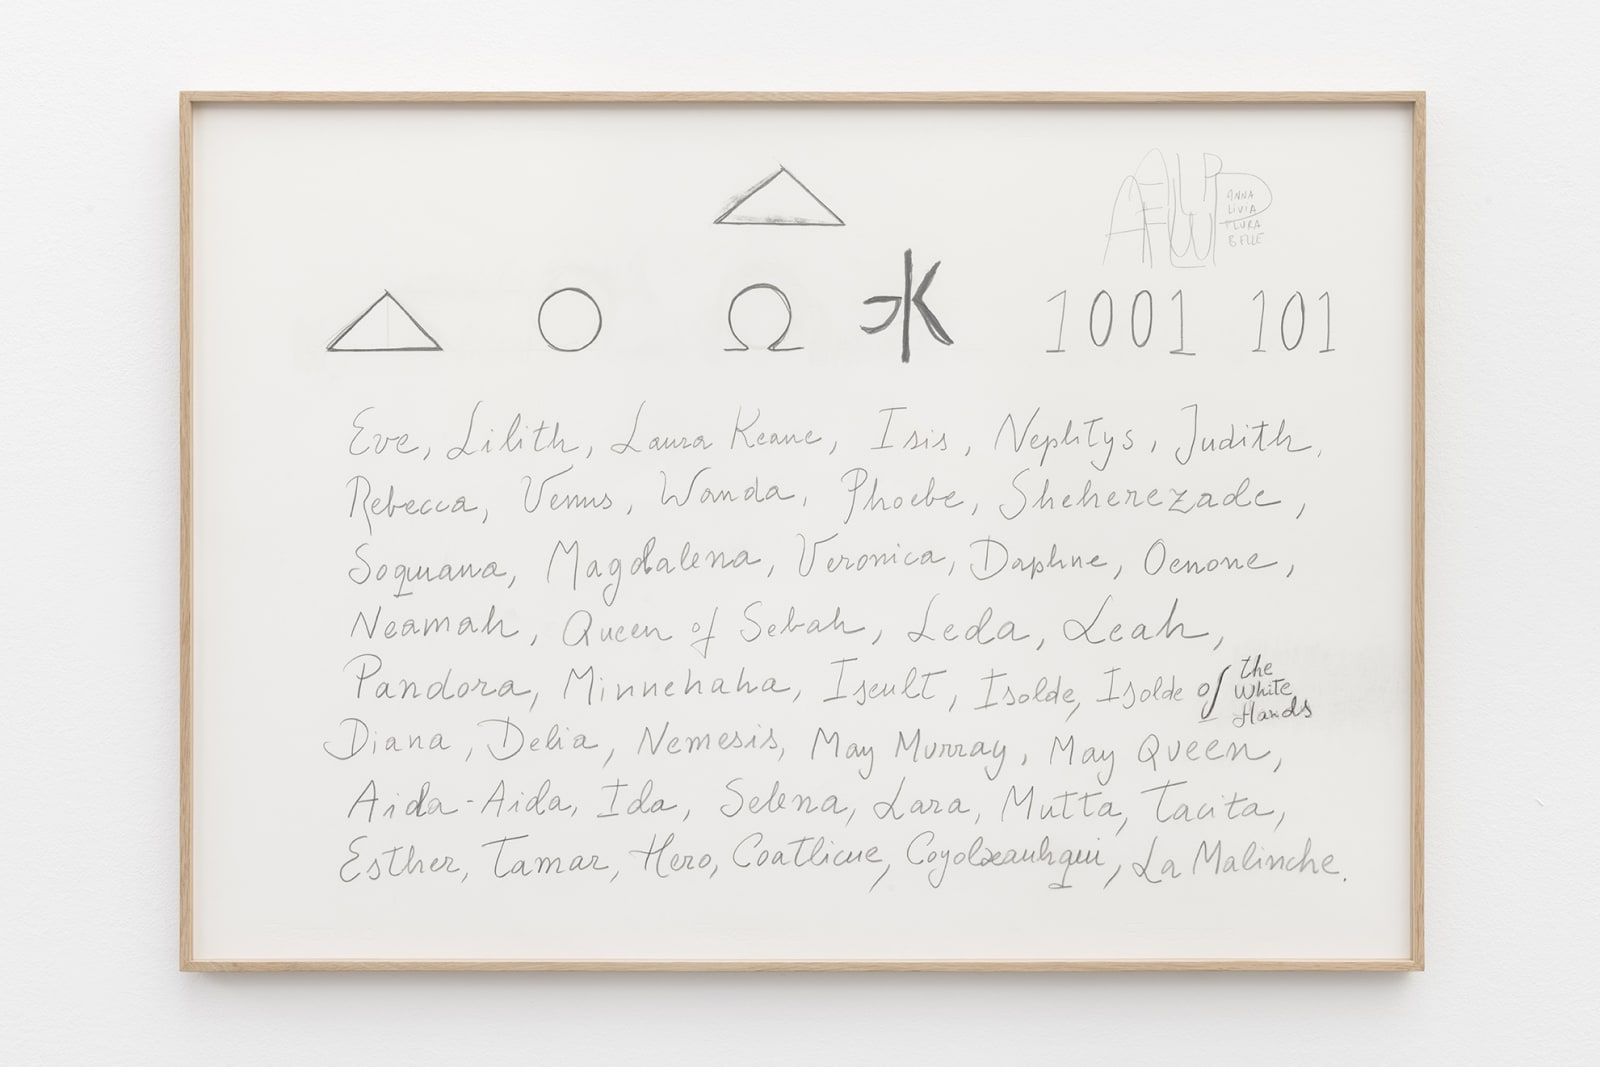 ALP
ANNA
LIVIA
PLURA
BELLE
Ω 水 1001 101
Eve, Lilith, Laura Keane, Isis, Nephtys, Judith,
Rebecca, Venus, Wanda, Phoebe, Sheherezade,
Soquana, Magdalena, Veronica, Daphne, Oenone,
Neamah, Queen of Sebah, Leda, Leah,
Pandora, Minnehaha, Iseult, Isolde, Isolde of the White Hands
Diana, Delia, Nemesis, May Murray, May Queen,
Aida-Aida, Ida, Selena, Lara, Mutta, Tacita,
Esther, Tamar, Hero, Coatlicue, Coyolxauhqui, La Malinche.